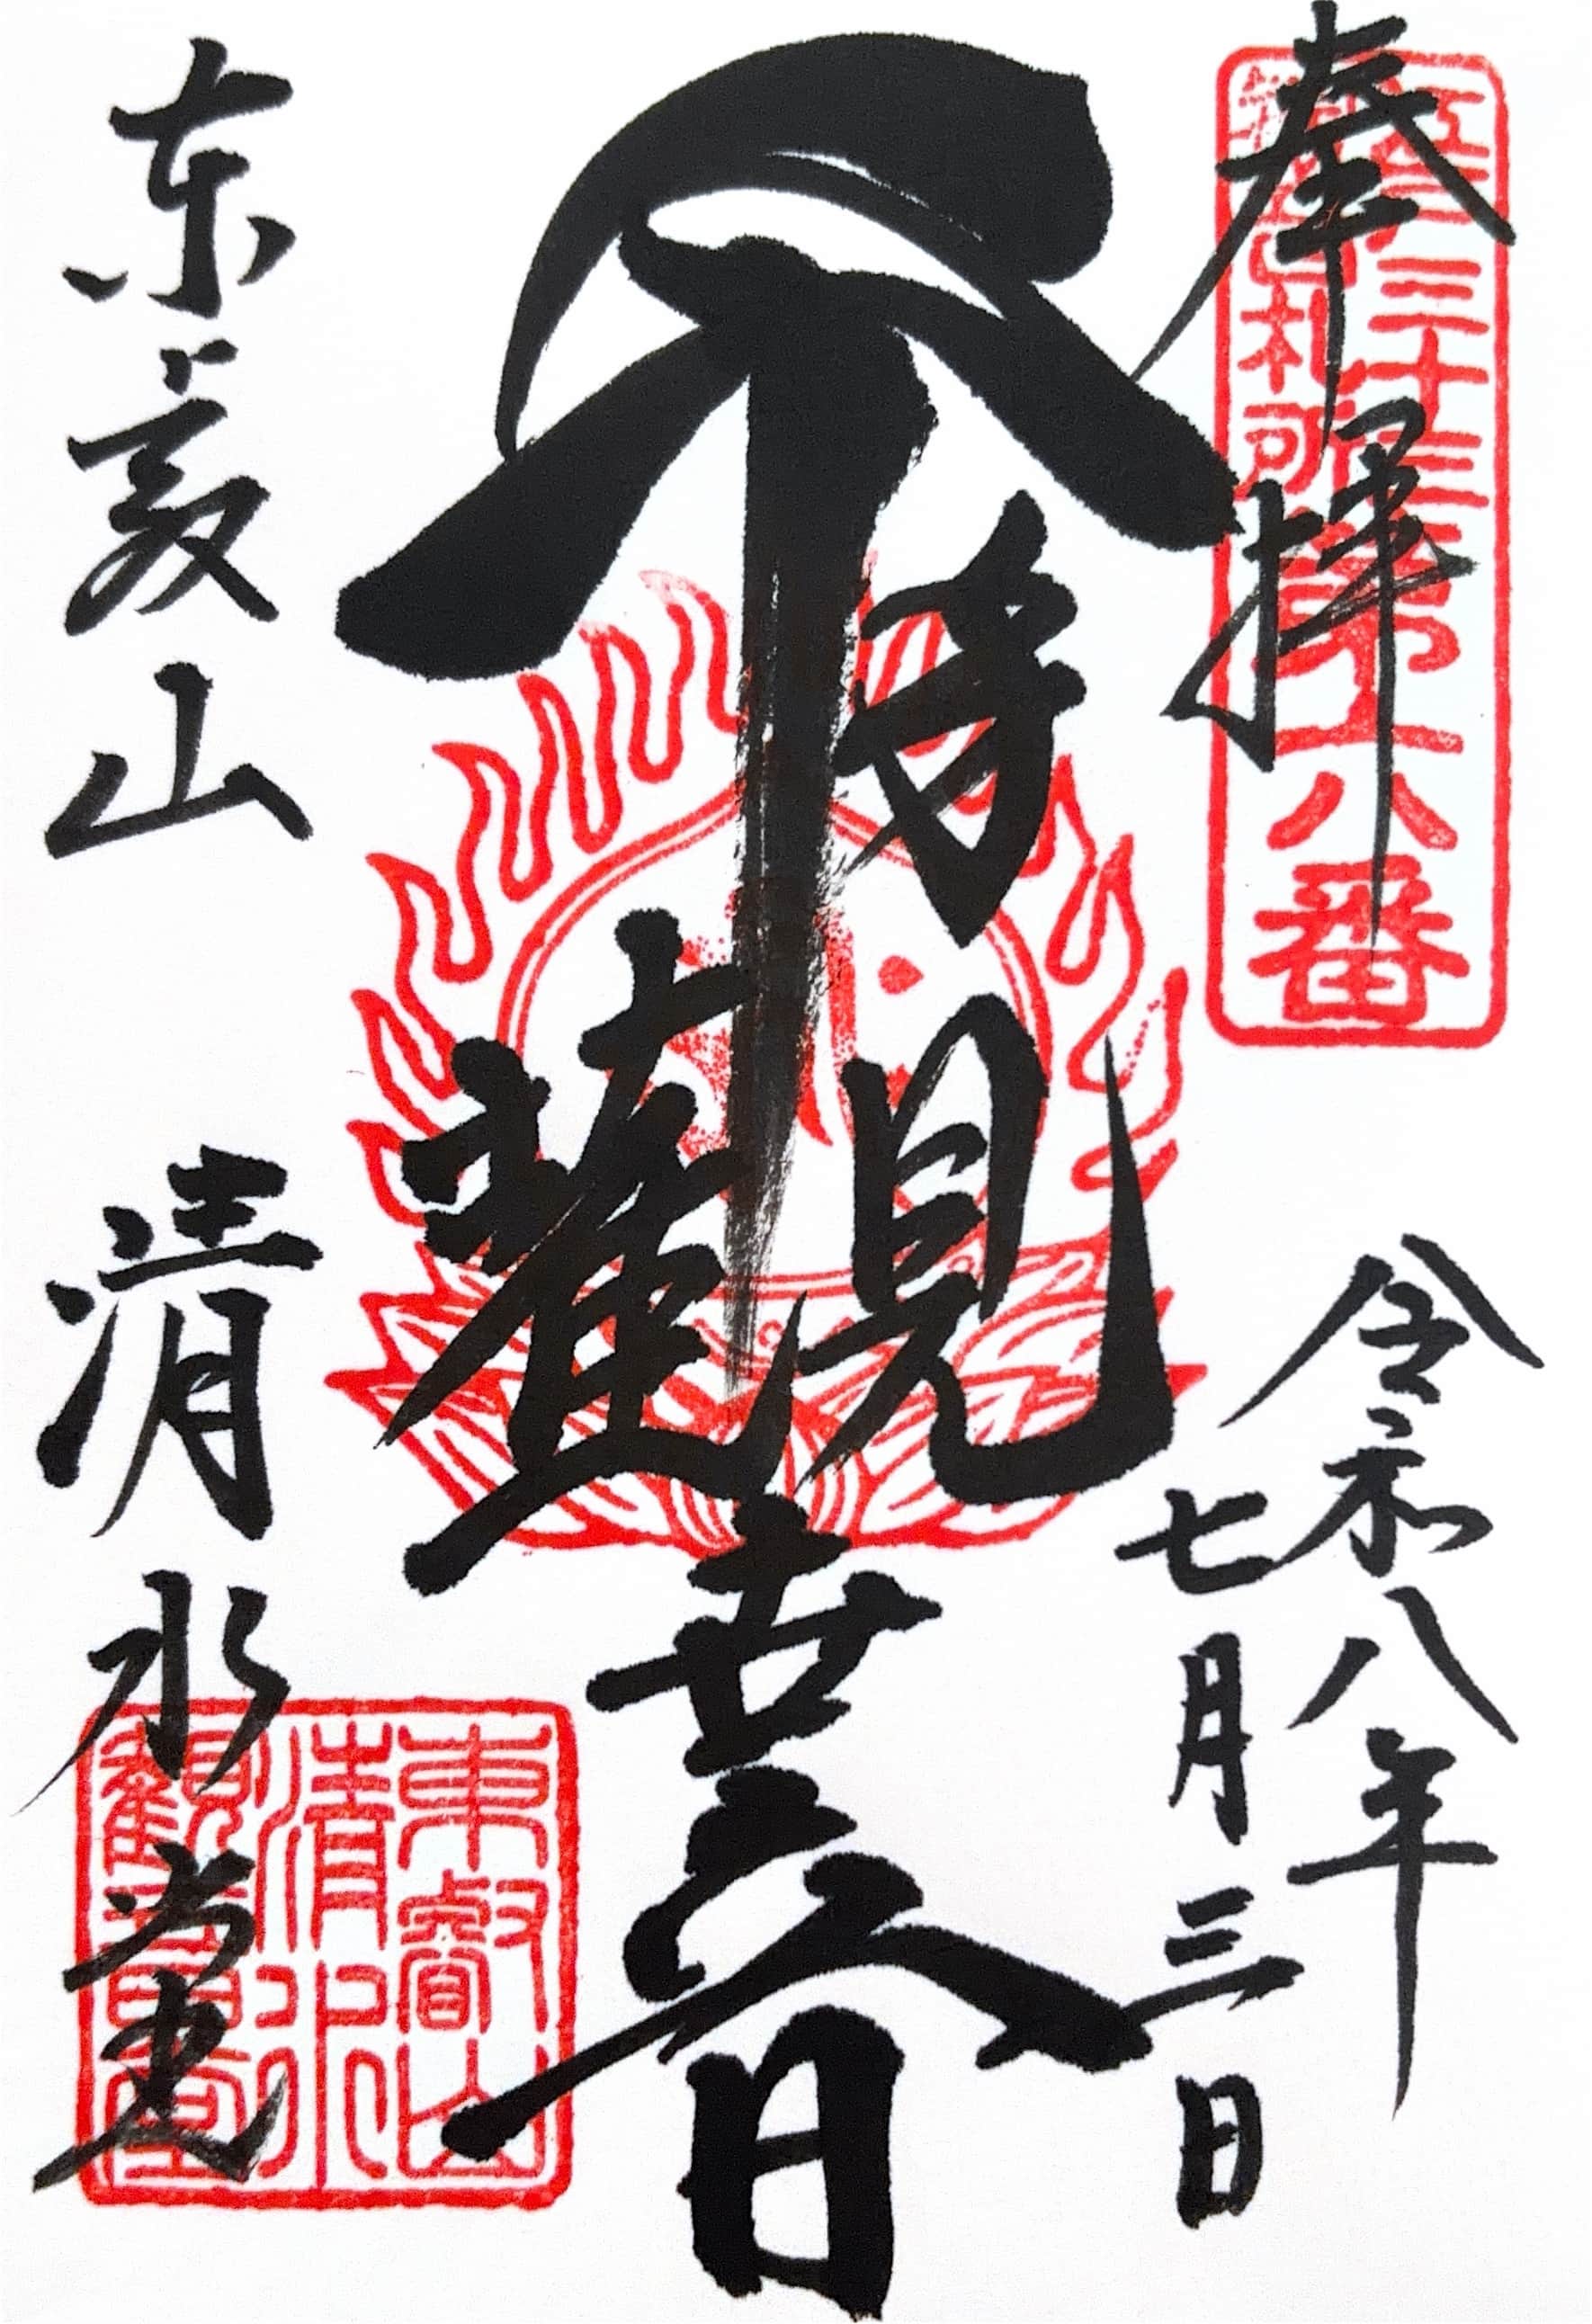 奉拝
江戸三十三
観音札所
第六番
令和八年
七月三日
千手觀世音
東叡山　清水堂
東叡山
清水
觀音堂